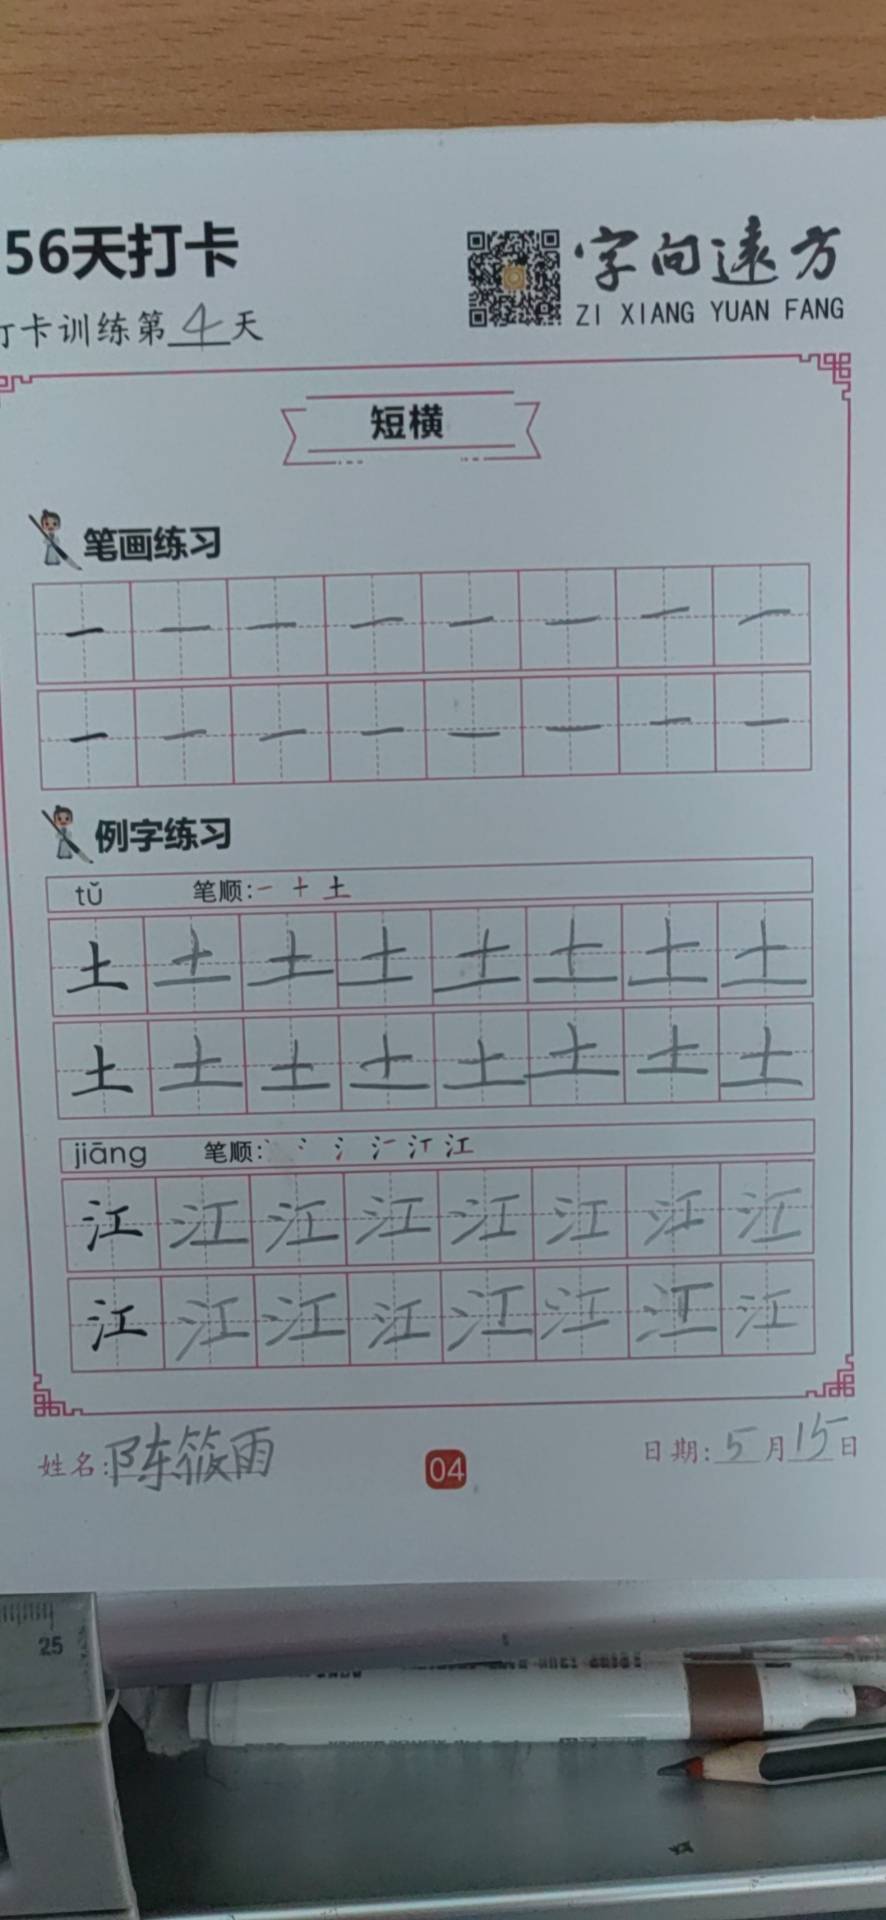 56天打卡
字向遠方
ZI XIANG YUAN FANG
打卡训练第4天
短横
笔画练习
一 一 一 一 一 一 一 一
一 一 一 一 一 一 一 一
例字练习
tǔ 笔顺:一 十 土
土 土 土 土 土 土 土 土
土 土 土 土 土 土 土 土
jiāng 笔顺: 江
江 江 江 江 江 江 江 江
江 江 江 江 江 江 江 江
姓名:陈筱雨
04
日期:5月15日
25